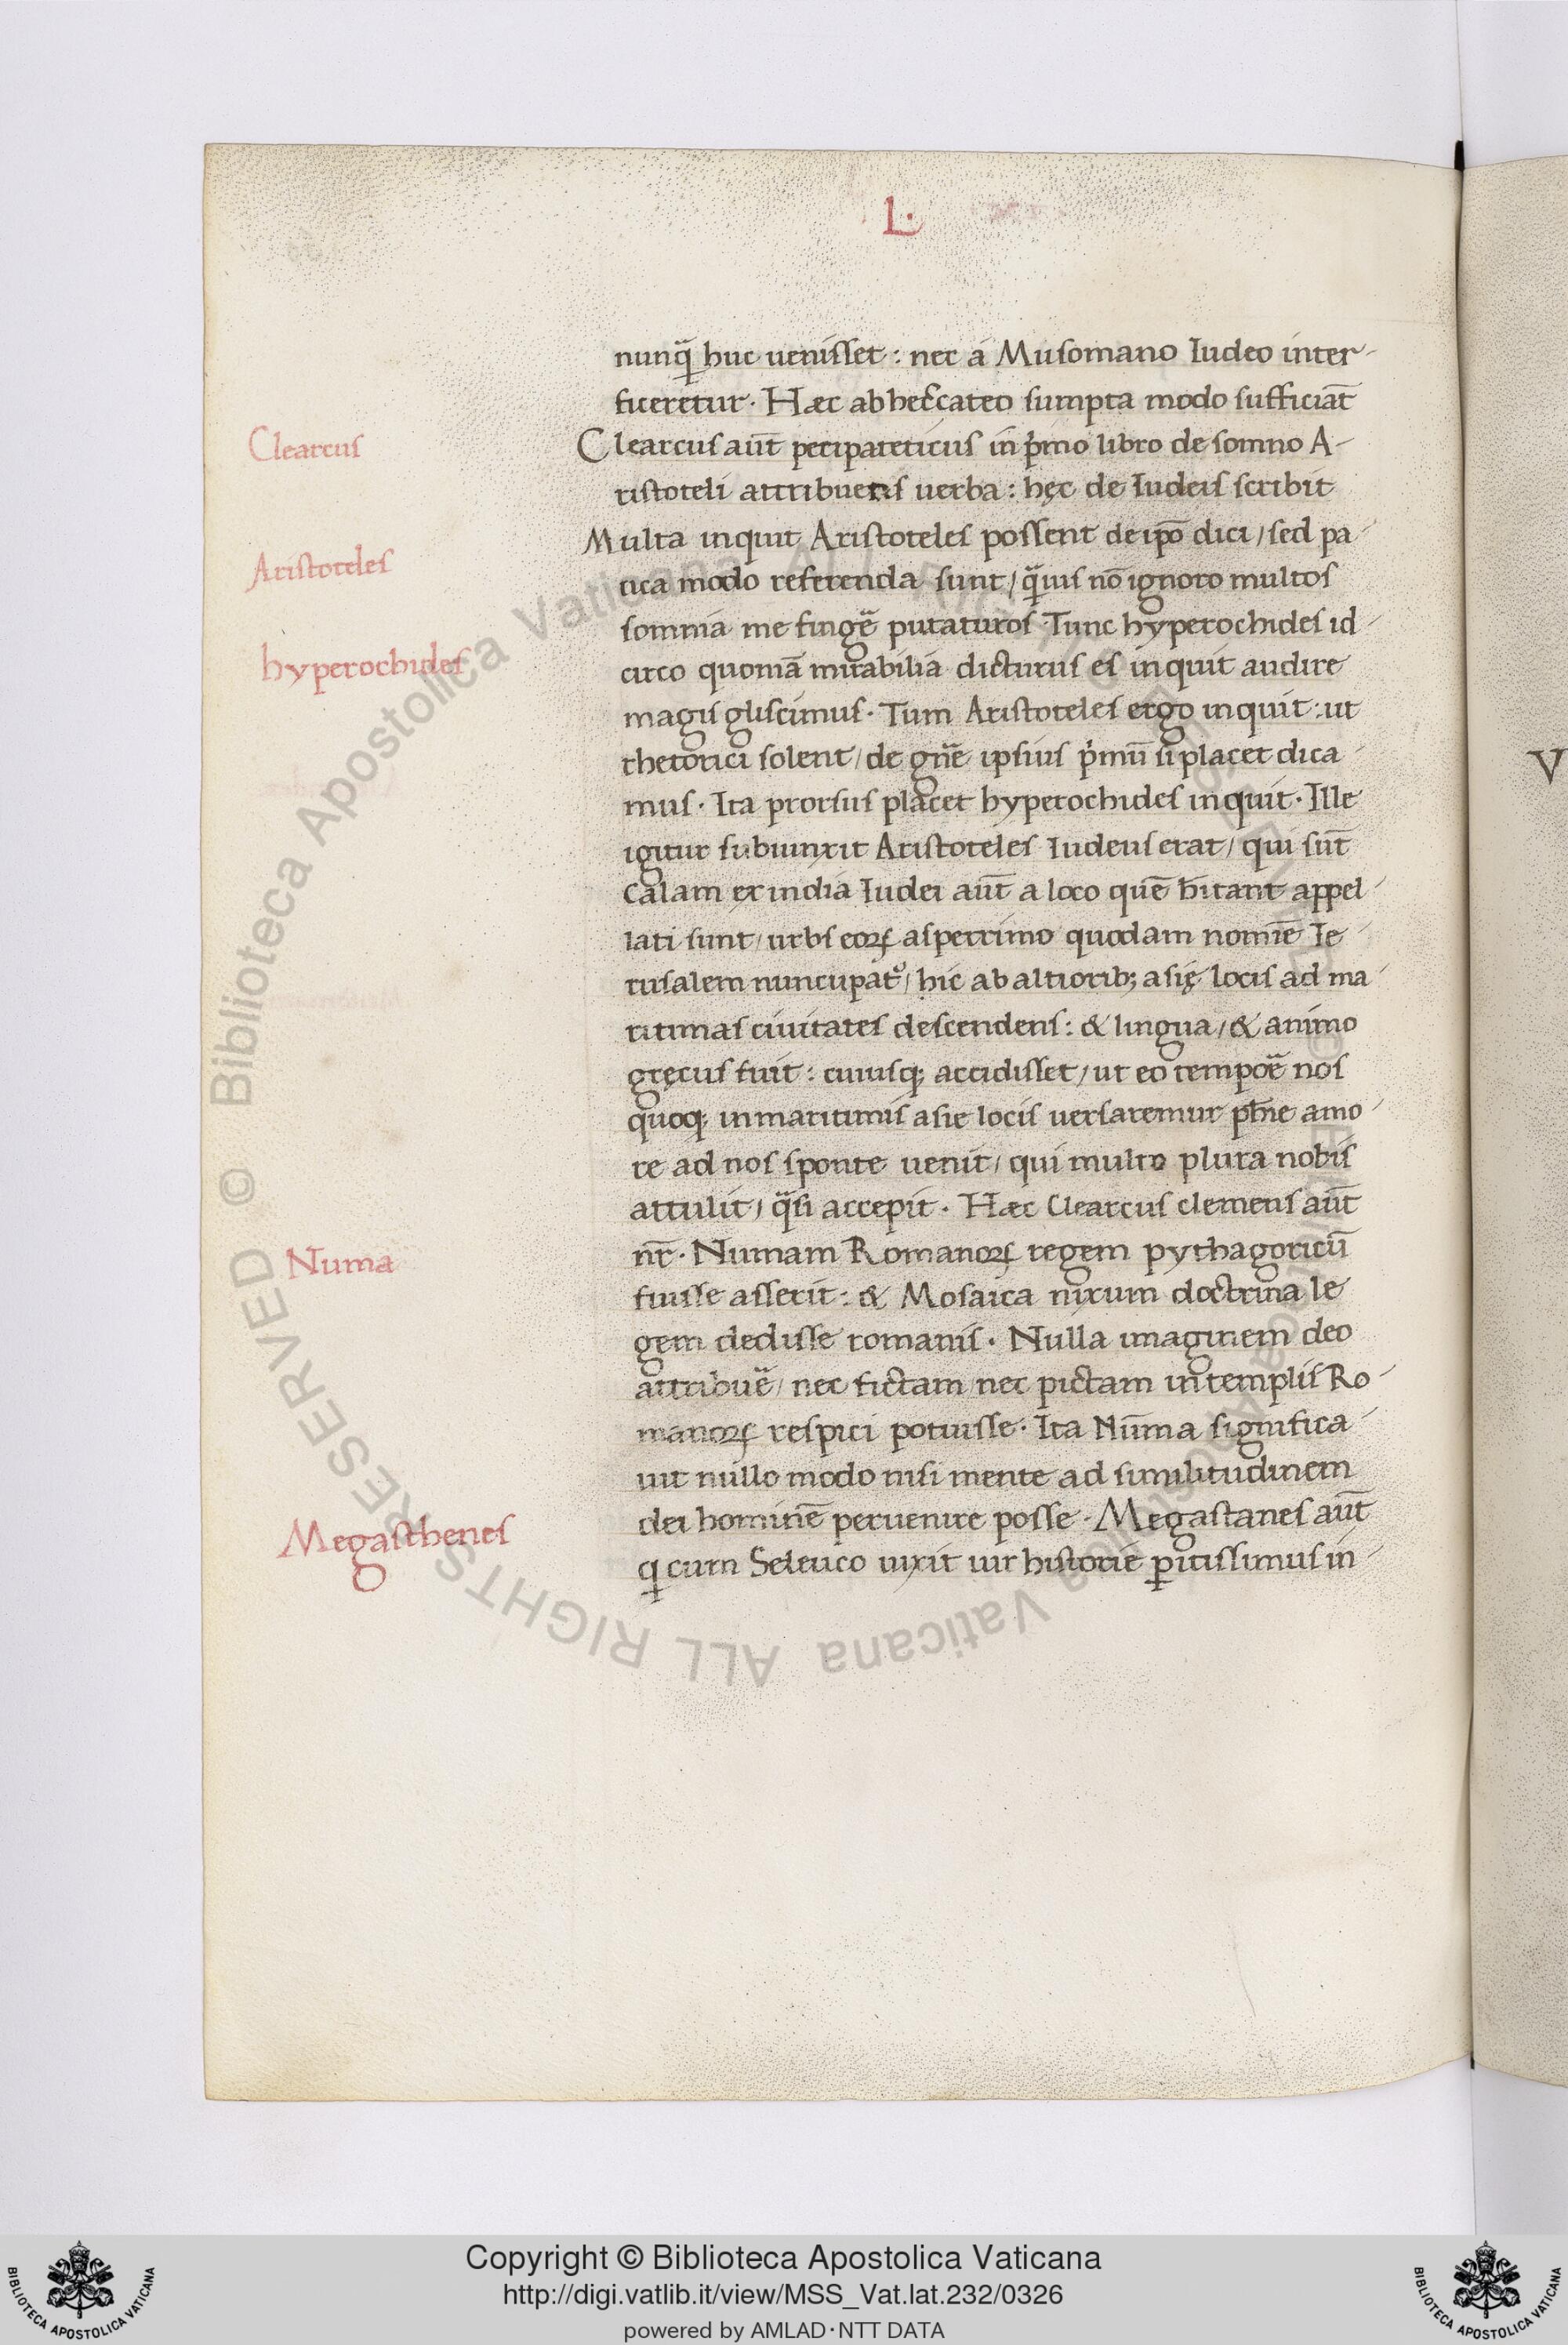 L·
nunq̃ huc uenisset : nec a Musomano Iudeo inter-
ficeretur · Hæc ab heccateo sumpta modo sufficiāt
Clearcus
Clearcus aūt peripateticus in p̄mo libro de somno A-
ristoteli attribuens uerba : hęc de Iudeis scribit
Multa inquit Aristoteles possent de ip̄o dici / sed pa-
Aristoteles
uca modo referenda sunt / q̃uis nō ignoro multos
somnia me fingē putaturos · Tunc hyperochides id-
hyperochides
circo quoniā mirabilia dicturus es inquit audire
magis gliscimus · Tum Aristoteles ergo inquit : ut
rhetorici solent / de gn̄e ipsius p̄mū si placet dica-
mus · Ita prorsus placet hyperochides inquit · Ille
igitur subiunxit Aristoteles Iudeus erat / qui sūt
Calam ex india Iudei aūt a loco quē h̄itant appel-
lati sunt / urbs eoꝝ asperrimo quodam nomīe Ie-
rusalem nuncupat᷒ / hic ab altiorib; asię locis ad ma-
ritimas ciuitates descendens : & lingua / & animo
gręcus fuit : cuiusq; accidisset / ut eo tempoē nos
quoq; in maritimis asie locis uersaremur ph̄ie amo-
re ad nos sponte uenit / qui multo plura nobis
attulit / q̃si accepit · Hæc Clearcus clemens aūt
Numa
nr̄ · Numam Romanoꝝ regem pythagoricū
fuisse asserit : & Mosaica nixum doctrina le-
gem dedisse romanis · Nulla imaginem deo
attribuē / nec fictam / nec pictam in templis Ro-
manoꝝ respici potuisse · Ita Numa significa-
uit nullo modo nisi mente ad similitudinem
dei hominē peruenire posse · Megastanes aūt
Megasthenes
q cum Seleuco uixit uir historie ꝑitissimus in-
V
Copyright © Biblioteca Apostolica Vaticana
http://digi.vatlib.it/view/MSS_Vat.lat.232/0326
powered by AMLAD·NTT DATA
BIBLIOTECA APOSTOLICA VATICANA
BIBLIOTECA APOSTOLICA VATICANA
© Biblioteca Apostolica Vaticana ALL RIGHTS RESERVED © Biblioteca Apostolica Vaticana ALL RIGHTS RESERVED